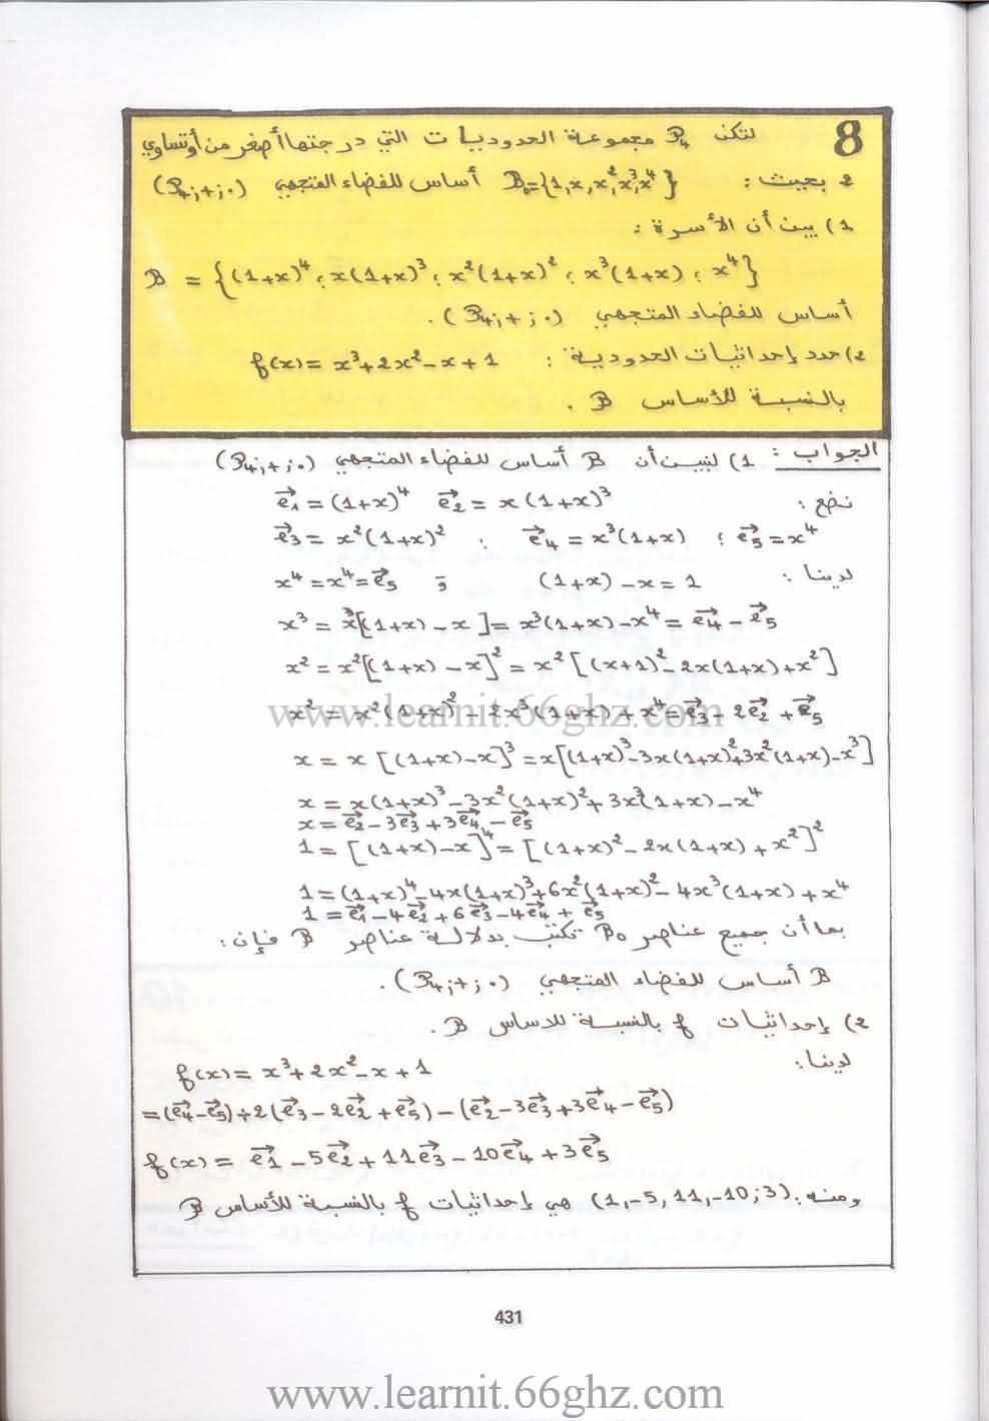 8
لتكن P₄ مجموعة الحدوديات التي درجتها أصغر من أوتساوي
2 بحيث : B₀={1,x,x²,x³,x⁴} أساس للفضاء المتجهي (P₄;+;.)
1) بين أن الأسرة :
B = {(1+x)⁴ ; x(1+x)³ ; x²(1+x)² ; x³(1+x) ; x⁴}
أساس للفضاء المتجهي (P₄;+;.).
2) حدد إحداثيات الحدودية : f(x)= x³+2x²-x+1
بالنسبة للأساس B .
الجواب : 1) لنبين أن B أساس للفضاء المتجهي (P₄;+;.)
نضع : e⃗₁=(1+x)⁴ e⃗₂= x(1+x)³
e⃗₃= x²(1+x)² ; e⃗₄= x³(1+x) ; e⃗₅=x⁴
لدينا : (1+x)-x=1 و x⁴=x⁴=e⃗₅
x³ = x³[(1+x)-x]= x³(1+x)-x⁴= e⃗₄-e⃗₅
x² = x²[(1+x)-x]² = x²[(x+1)²-2x(1+x)+x²]
x² = x²(1+x)²-2x³(1+x)+x⁴=e⃗₃-2e⃗₂+e⃗₅
x = x [(1+x)-x]³=x[(1+x)³-3x(1+x)²+3x²(1+x)-x³]
x = x(1+x)³-3x²(1+x)²+3x³(1+x)-x⁴
x = e⃗₂-3e⃗₃+3e⃗₄-e⃗₅
1= [(1+x)-x]⁴= [(1+x)²-2x(1+x)+x²]²
1=(1+x)⁴-4x(1+x)³+6x²(1+x)²-4x³(1+x)+x⁴
1 = e⃗₁-4e⃗₂+6e⃗₃-4e⃗₄+e⃗₅
بما أن جميع عناصر B₀ تكتب بدلالة عناصر B فإن :
B أساس للفضاء المتجهي (P₄;+;.).
2) إحداثيات f بالنسبة للاساس B .
لدينا :
f(x)= x³+2x²-x+1
=(e⃗₄-e⃗₅)+2(e⃗₃-2e⃗₂+e⃗₅)-(e⃗₂-3e⃗₃+3e⃗₄-e⃗₅)
f(x)= e⃗₁-5e⃗₂+11e⃗₃-10e⃗₄+3e⃗₅
ومنه : (1,-5,11,-10;3) هي إحداثيات f بالنسبة للأساس B
431
www.learnit.66ghz.com
www.learnit.66ghz.com